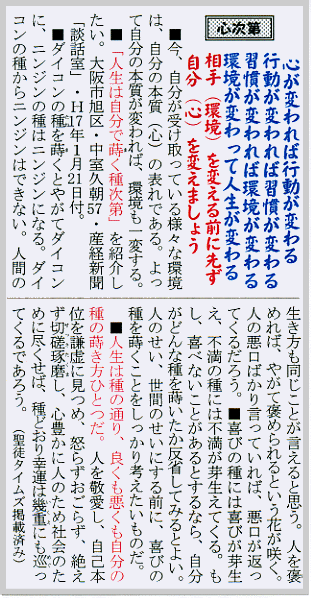 心次第
心が変われば行動が変わる
行動が変われば習慣が変わる
習慣が変われば環境が変わる
環境が変わって人生が変わる
相手（環境）を変える前に先ず
自分（心）を変えましょう
■今、自分が受け取っている様々な環境
は、自分の本質（心）の表れである。よっ
て自分の本質が変われば、環境も一変する。
■「人生は自分で蒔く種次第」を紹介し
たい。大阪市旭区・中室久朝57・産経新聞
「談話室」・H17年１月21日付。
■ダイコンの種を蒔くとやがてダイコン
に、ニンジンの種はニンジンになる。ダイ
コンの種からニンジンはできない。人間の
生き方も同じことが言えると思う。人を褒
めれば、やがて褒められるという花が咲く。
人の悪口ばかり言っていれば、悪口が返っ
てくるだろう。■喜びの種には喜びが芽生
え、不満の種には不満が芽生えてくる。も
し、喜べないことがあるとするなら、自分
がどんな種を蒔いたか反省してみるとよい。
人のせい、世間のせいにする前に、喜びの
種を蒔くことをしっかり考えたいものだ。
■人生は種の通り、良くも悪くも自分の
種の蒔き方ひとつだ。人を敬愛し、自己本
位を謙虚に見つめ、怒らずおごらず、絶え
ず切磋琢磨し、心豊かに人のため社会のた
めに尽くせば、種どおり幸運は幾重にも巡っ
てくるであろう。（聖徒タイムズ掲載済み）